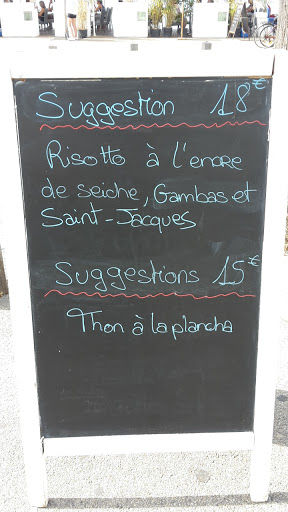 Suggestion 18€
Risotto à l'encre
de seiche, Gambas et
Saint-Jacques
Suggestions 15€
Thon à la plancha